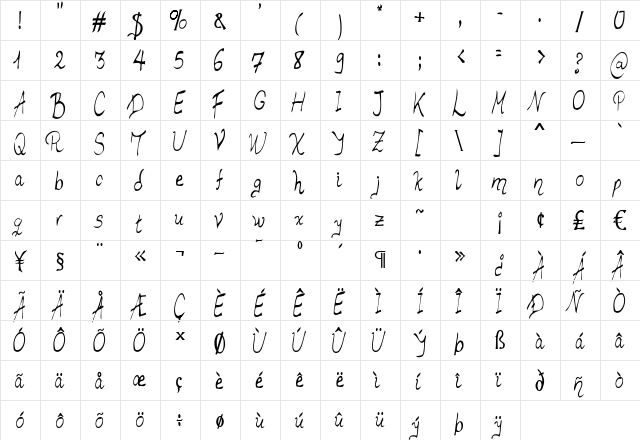 ! " # $ % & ' ( ) * + , - . / 0
1 2 3 4 5 6 7 8 9 : ; < = > ? @
A B C D E F G H I J K L M N O P
Q R S T U V W X Y Z [ \ ] ^ _ `
a b c d e f g h i j k l m n o p
q r s t u v w x y z ~ ¡ ¢ £ €
¥ § ¨ « ¬ ¯ ° ´ ¶ · » ¿ À Á Â
Ã Ä Å Æ Ç È É Ê Ë Ì Í Î Ï Ð Ñ Ò
Ó Ô Õ Ö × Ø Ù Ú Û Ü Ý Þ ß à á â
ã ä å æ ç è é ê ë ì í î ï ð ñ ò
ó ô õ ö ÷ ø ù ú û ü ý þ ÿ